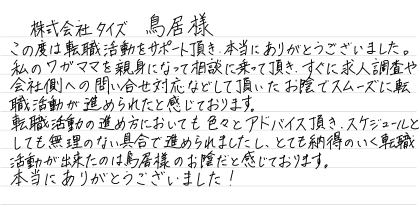 株式会社タイズ 鳥居様
この度は転職活動をサポート頂き、本当にありがとうございました。
私のワガママを親身になって相談に乗って頂き、すぐに求人調査や
会社側への問い合せ対応などして頂いたお陰でスムーズに転
職活動が進められたと感じております。
転職活動の進め方においても色々とアドバイス頂き、スケジュールと
しても無理のない具合で進められましたし、とても納得のいく転職
活動が出来たのは鳥居様のお陰だと感じております。
本当にありがとうございました！